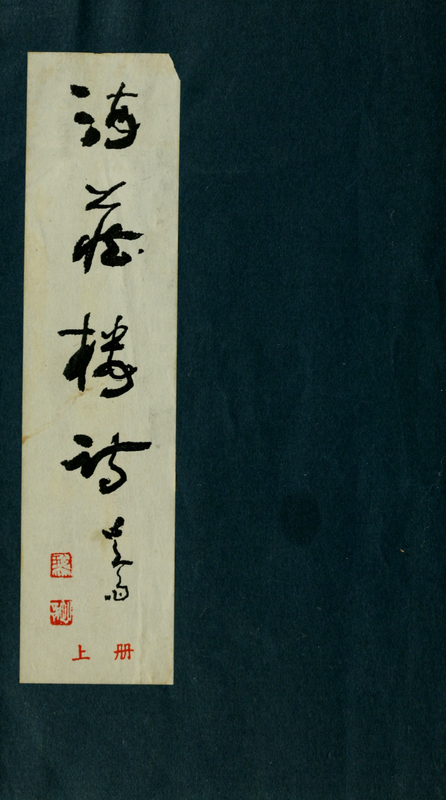 海藏樓詩
上册